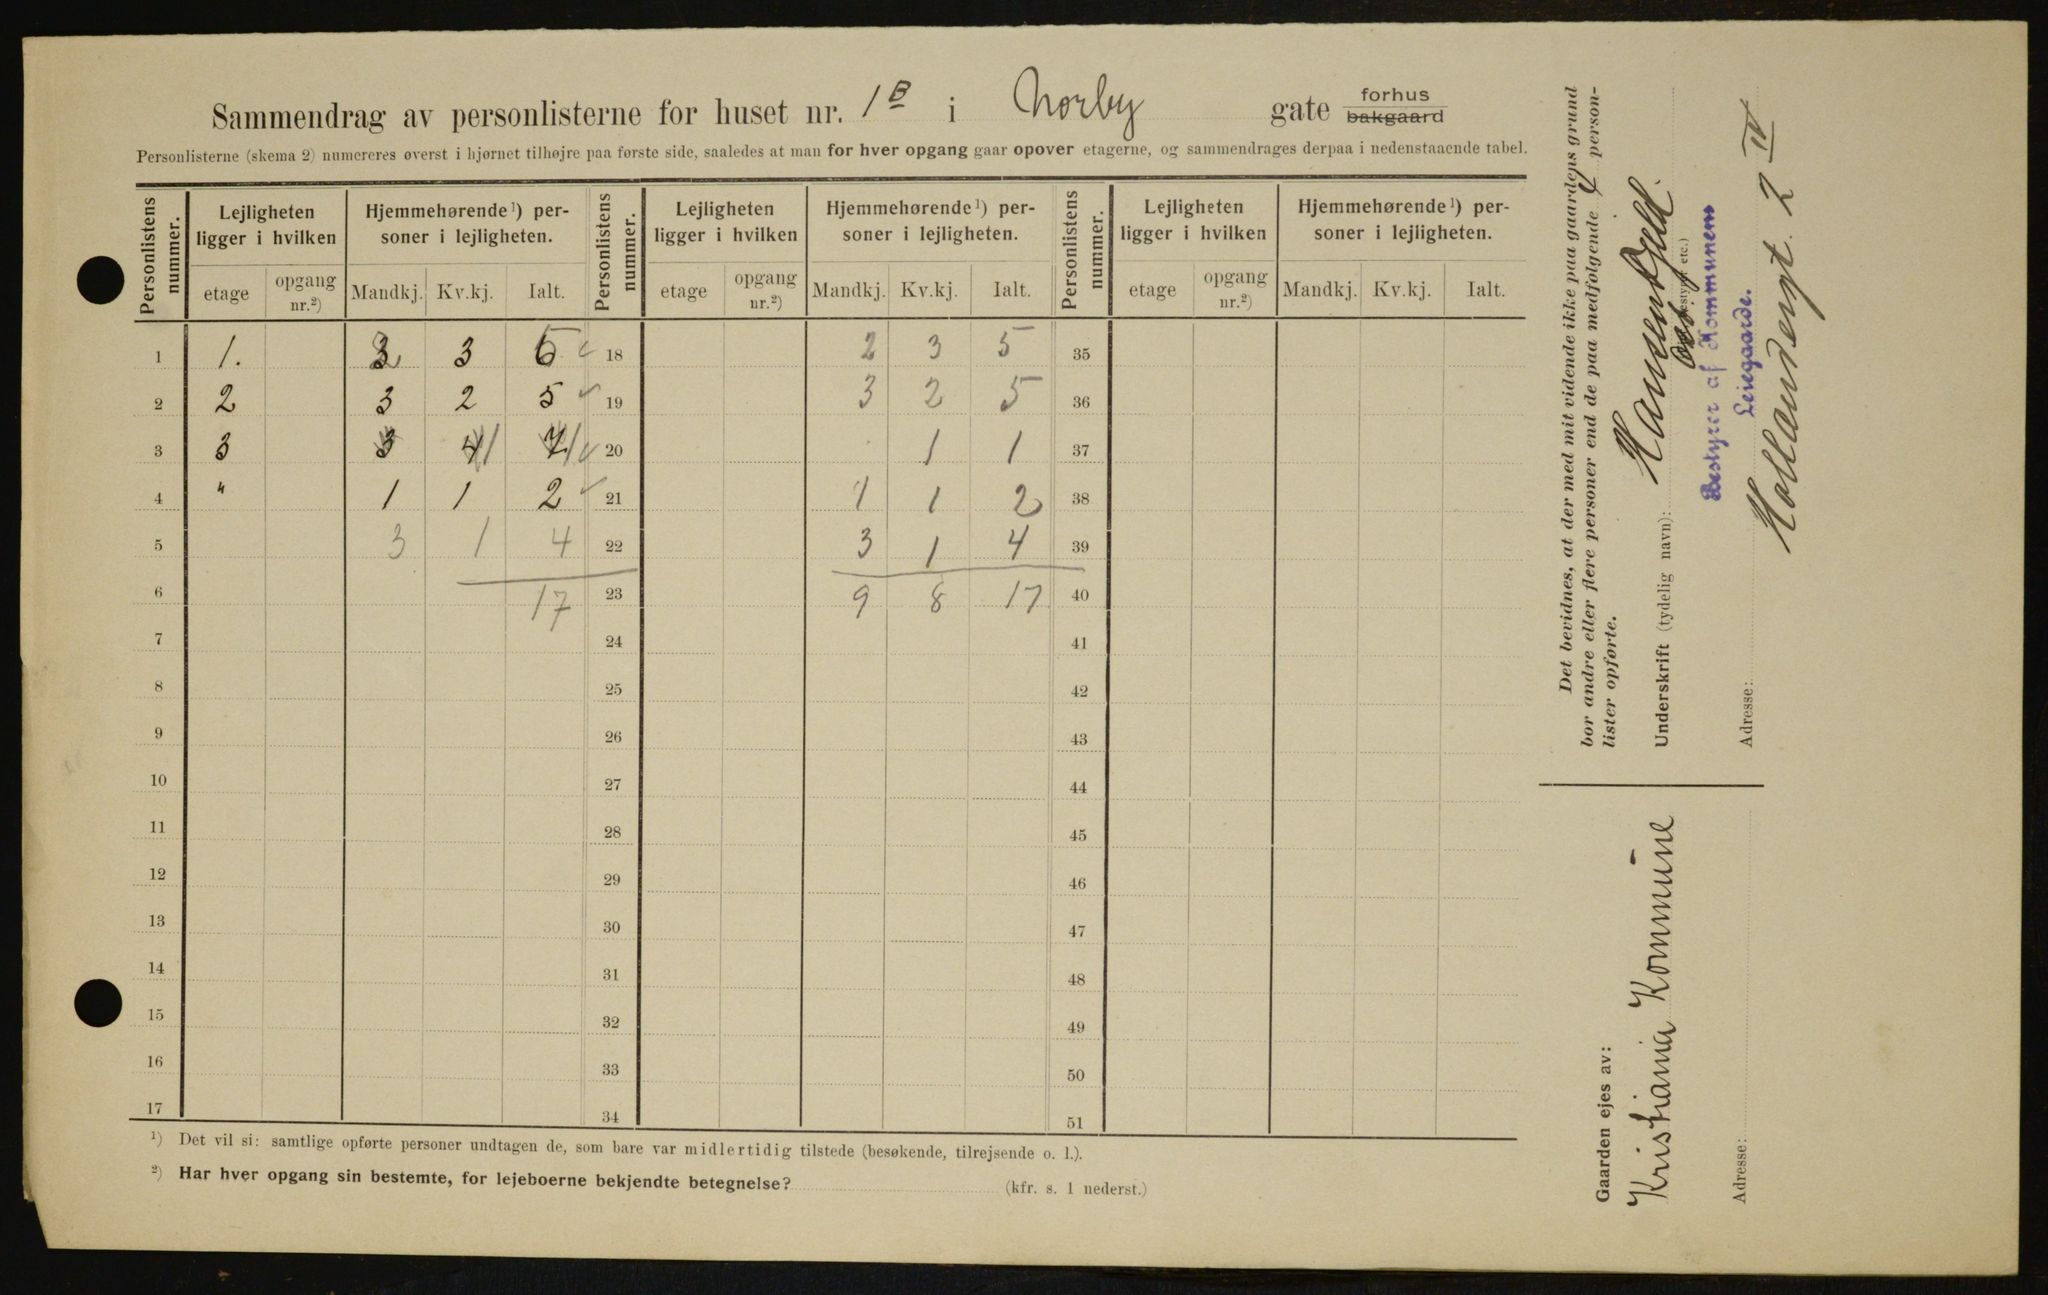 Sammendrag av personlisterne for huset nr. 1 B i Norby gate forhus bakgaard
Personlisterne (skema 2) numereres øverst i hjørnet tilhøjre paa første side, saaledes at man for hver opgang gaar opover etagerne, og sammendrages derpaa i nedenstaaende tabel.
Personlistens nummer. Lejligheten ligger i hvilken Hjemmehørende ¹) personer i lejligheten. Personlistens nummer. Lejligheten ligger i hvilken Hjemmehørende ¹) personer i lejligheten. Personlistens nummer. Lejligheten ligger i hvilken Hjemmehørende ¹) personer i lejligheten.
etage opgang nr.²) Mandkj. Kv.kj. Ialt. etage opgang nr.²) Mandkj. Kv.kj. Ialt. etage opgang nr.²) Mandkj. Kv.kj. Ialt.
1 1. 2 3 5 18 2 3 5 35
2 2 3 2 5 19 3 2 5 36
3 3 3 4 1 7 1 20 1 1 37
4 " 1 1 2 21 1 1 2 38
5 3 1 4 22 3 1 4 39
6 17 23 9 8 17 40
7 24 41
8 25 42
9 26 43
10 27 44
11 28 45
12 29 46
13 30 47
14 31 48
15 32 49
16 33 50
17 34 51
¹) Det vil si: samtlige opførte personer undtagen de, som bare var midlertidig tilstede (besøkende, tilrejsende o. l.).
²) Har hver opgang sin bestemte, for lejeboerne bekjendte betegnelse? (kfr. s. 1 nederst.)
Det bevidnes, at der med mit vidende ikke paa gaardens grund
bor andre eller flere personer end de paa medfølgende 4 person-
lister opførte.
Underskrift (tydelig navn):
Bestyrer af Kommunens
Leiegaarde.
Adresse: Hollendergt. 2 IV
Gaarden ejes av:
Kristiania Kommune
Adresse: